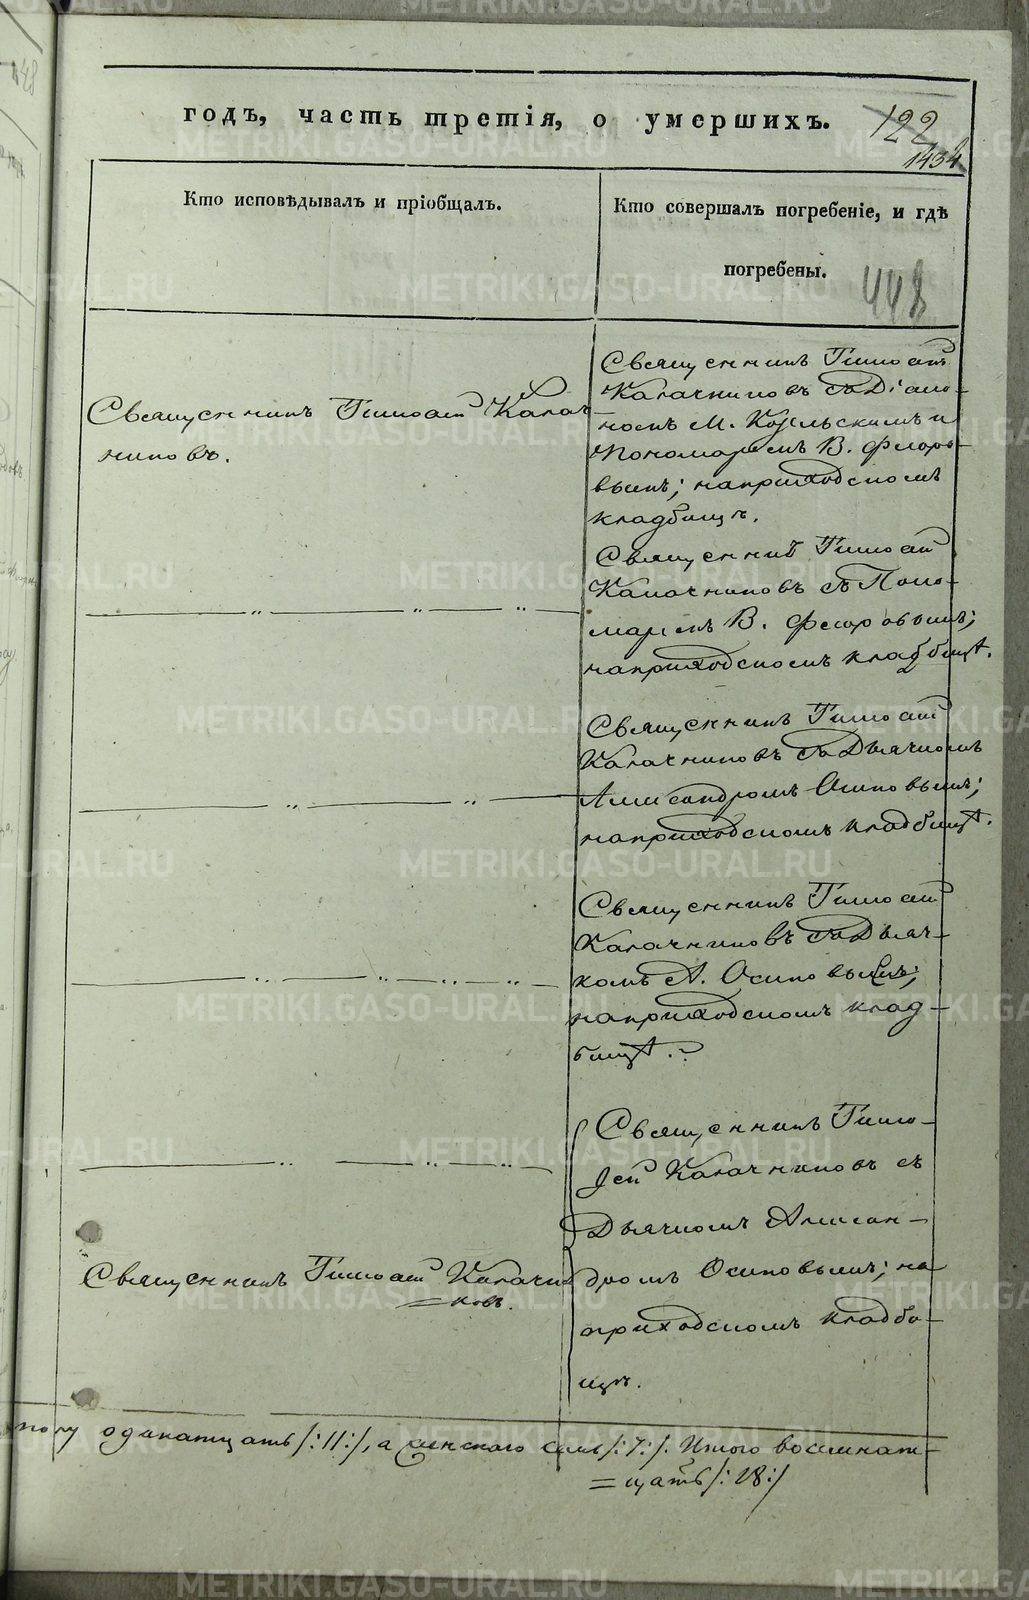 годъ, часть третія, о умершихъ.
122
1434
Кто исповѣдывалъ и пріобщалъ.
Кто совершалъ погребеніе, и гдѣ
погребены.
448
Священникъ Тимоѳей Калач-
никовъ.
Священникъ Тимоѳей
Калачниковъ съ Діако-
номъ М. Козельскимъ и
Пономаремъ В. Флоро-
вымъ; на приходскомъ
кладбищѣ.
Священникъ Тимоѳей
Калачниковъ съ Поно-
маремъ В. Флоровымъ;
на приходскомъ кладбищѣ.
Священникъ Тимоѳей
Калачниковъ съ Дьячкомъ
Александромъ Осиповымъ;
на приходскомъ кладбищѣ.
Священникъ Тимоѳей
Калачниковъ съ Дьяч-
комъ А. Осиповымъ;
на приходскомъ клад-
бищѣ.
Священникъ Тимо-
ѳей Калачниковъ съ
Дьячкомъ Алексан-
дромъ Осиповымъ; на
приходскомъ кладби-
щѣ.
Священникъ Тимоѳей Калачни
=ковъ.
полу одинатцать /:11:/, а женскаго семь /:7:/. Итого восемнат-
=цать /:18:/
METRIKI.GASO-URAL.RU